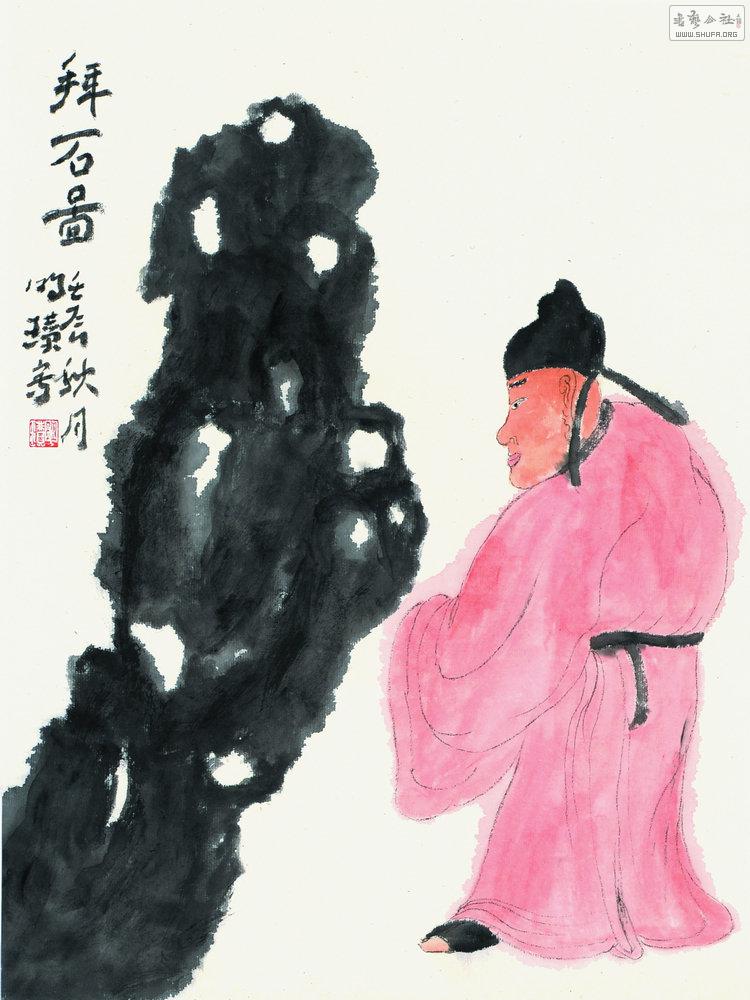 拜石啚
壬辰秋月
写
书艺公社
WWW.SHUFA.ORG